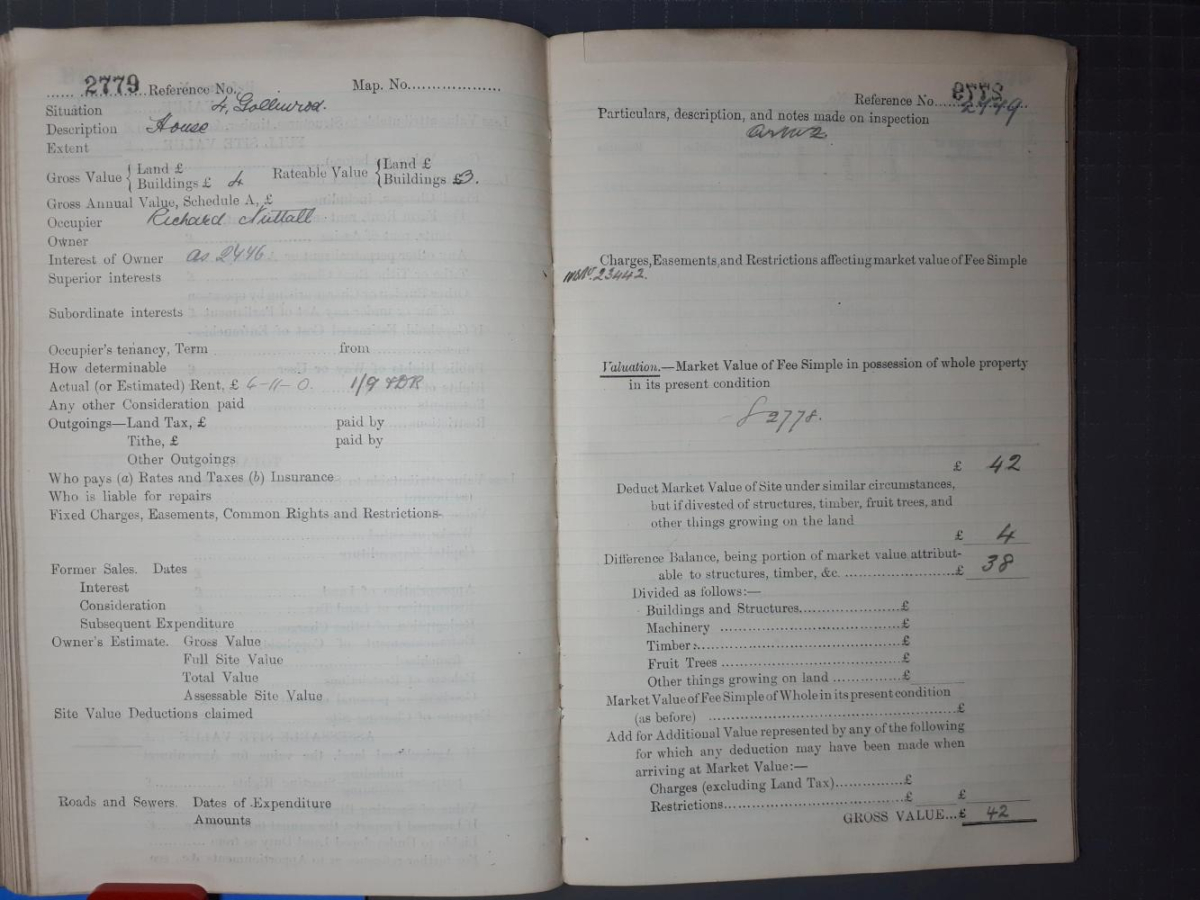 2779 Reference No. Map. No.
Situation 4, Gollinrod.
Description House
Extent
Gross Value { Land £
Buildings £ 4 Rateable Value { Land £
Buildings £3.
Gross Annual Value, Schedule A, £
Occupier Richard Nuttall
Owner
Interest of Owner as 2446
Superior interests
Subordinate interests
Occupier's tenancy, Term from
How determinable
Actual (or Estimated) Rent, £ 4-11-0. 1/9
Any other Consideration paid
Outgoings—Land Tax, £ paid by
Tithe, £ paid by
Other Outgoings
Who pays (a) Rates and Taxes (b) Insurance
Who is liable for repairs
Fixed Charges, Easements, Common Rights and Restrictions
Former Sales. Dates
Interest
Consideration
Subsequent Expenditure
Owner's Estimate. Gross Value
Full Site Value
Total Value
Assessable Site Value
Site Value Deductions claimed
Roads and Sewers. Dates of Expenditure
Amounts
Reference No. 2779
Particulars, description, and notes made on inspection
Charges, Easements, and Restrictions affecting market value of Fee Simple
23442.
Valuation.—Market Value of Fee Simple in possession of whole property
in its present condition
2778.
£ 42
Deduct Market Value of Site under similar circumstances,
but if divested of structures, timber, fruit trees, and
other things growing on the land
£ 4
Difference Balance, being portion of market value attribut-
able to structures, timber, &c. £ 38
Divided as follows:—
Buildings and Structures £
Machinery £
Timber £
Fruit Trees £
Other things growing on land £
Market Value of Fee Simple of Whole in its present condition
(as before) £
Add for Additional Value represented by any of the following
for which any deduction may have been made when
arriving at Market Value:—
Charges (excluding Land Tax) £
Restrictions £ £
GROSS VALUE...£ 42